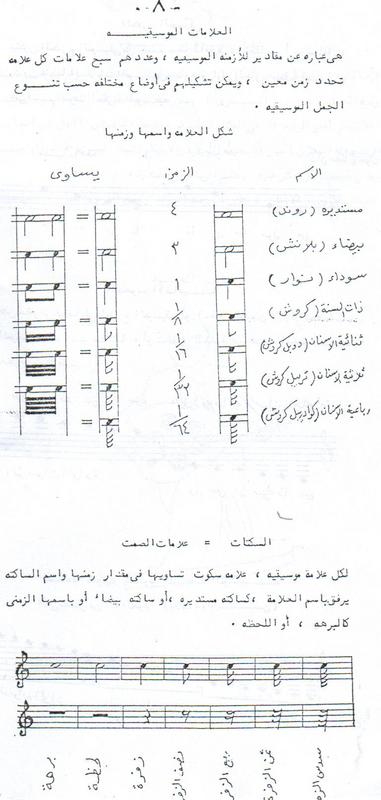 - ٨ -
العلامات الموسيقيـــــه
هى عباره عن مقادير للأزمنه الموسيقيه ، وعددهم سبع علامات كل علامه
تحدد زمن معين ، ويمكن تشكيلهم فى أوضاع مختلفه حسب تنـــوع
الجمل الموسيقيه .
شكل العلامه واسمها وزمنها
الاسم الزمن يساوى
مستديره ( روند ) ٤ =
بيضاء ( بلانش ) ٣ =
سوداء ( نوار ) ١ =
ذات السنة ( كروش ) ١/٨ =
ثنائية الاسنان ( دوبل كروش ) ١/١٦ =
ثلاثية الاسنان ( تريبل كروش ) ١/٣٢ =
رباعية الاسنان ( كوادريبل كروش ) ١/٦٤ =
السكتات = علامات الصمت
لكل علامة موسيقيه ، علامه سكوت تساويها فى مقدار زمنها واسم الساكته
يرفق باسم العلامة ، كساكته مستديره ، أو ساكته بيضاء أو باسمها الزمنى
كالبرهه ، أو اللحظه .
برهة لحظة زفرة نصف الزفرة ربع الزفرة ثمن الزفرة